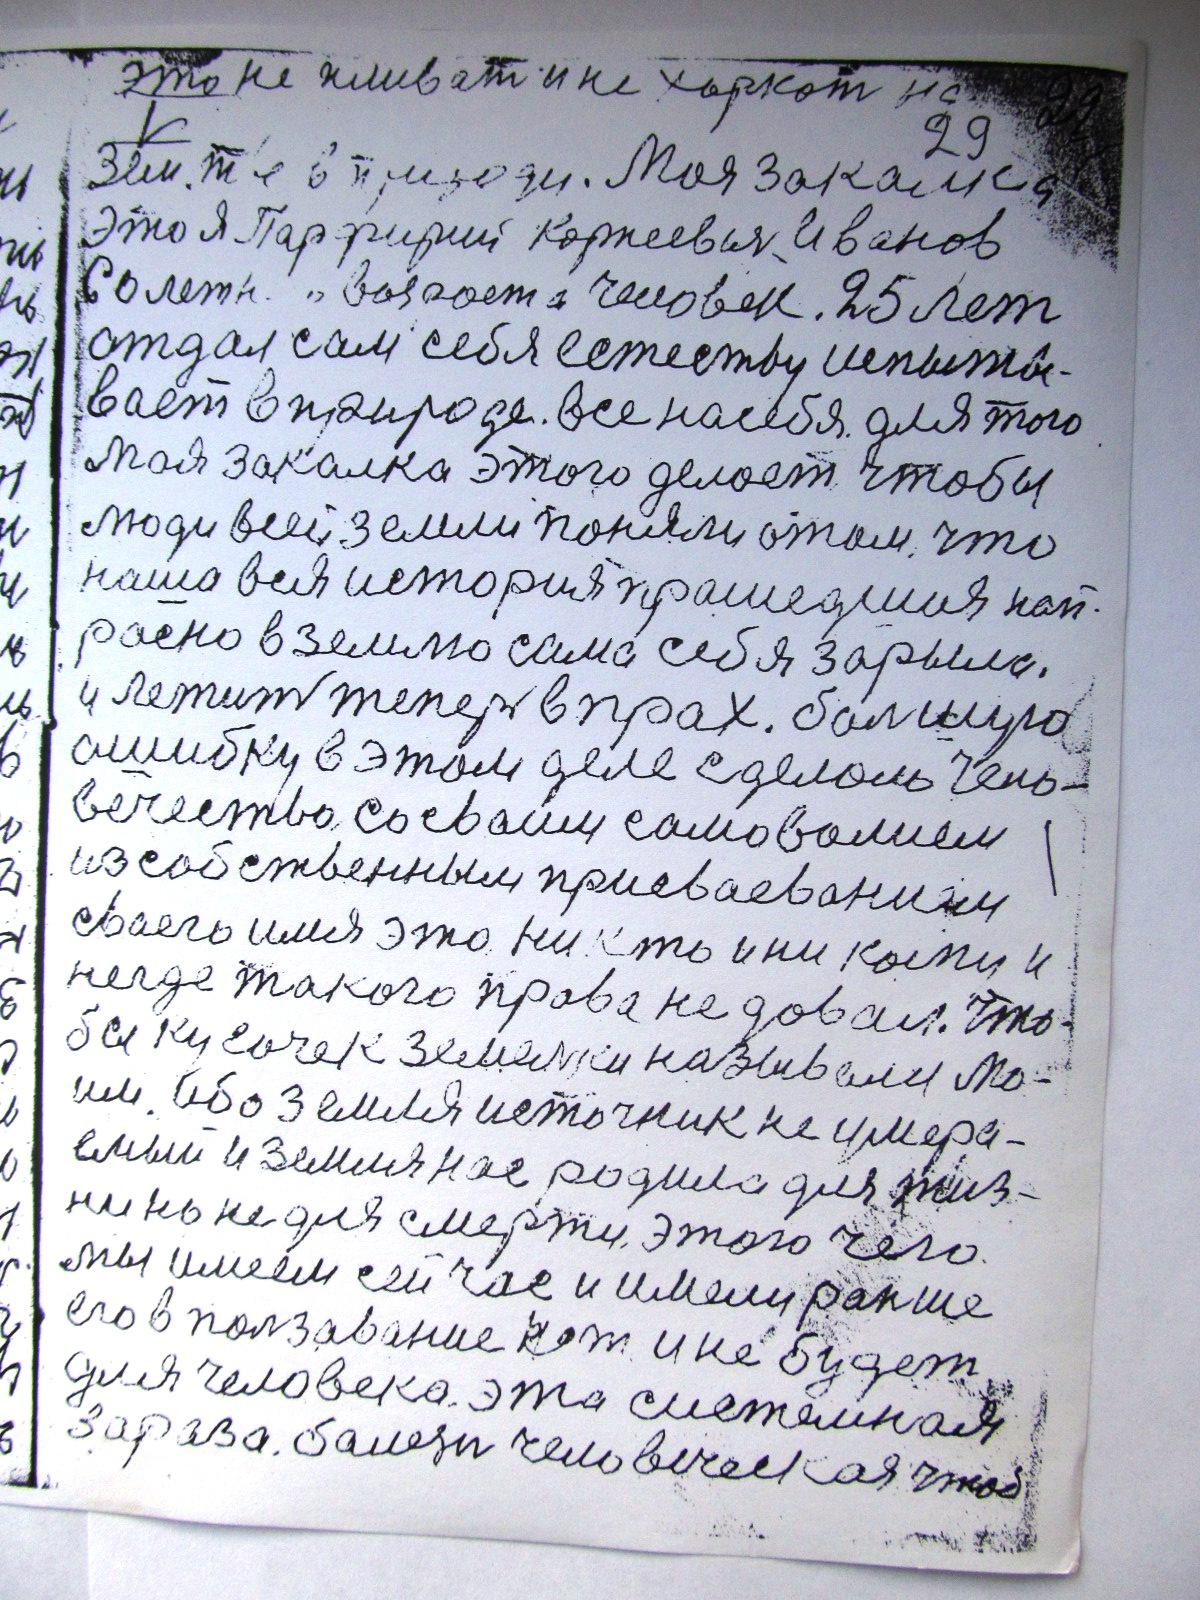 это не пливат и не харкат на
29
29
Зем. т е в природи. Моя закалка
это я Парфирий Корнеевья Иванов
летн возраста человек. 25 лет
отдал сам себя естеству испыты-
вает в природе. все на себя. для того
моя закалка этого делоет чтобы
люди всей земли поняли отом. что
наша вся история прашедшия нап-
расно в землю сама себя зарыла.
и летит тепер в прах. балшую
ошибку в этом деле сделоль чело-
вечество, со сваим самоволием
из собственным присваеванием
сваего имя это. ни кто и ни кому и
негде такого права не довал. что-
бы кусочек земельки называли мо-
им. ибо земля источник не умера-
емый и земля нас родила для жиз-
ни но не для смерти. этого чего
мы имеем сейчас и имели ранше
его в ползавание нет и не будет
для человека. эта системная
зараза. балезн человеческая чтоб